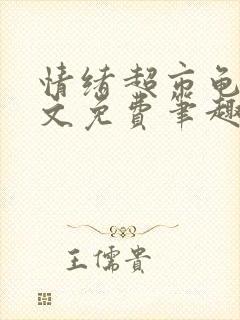 情绪超市龟
文免费笔趣
王儒贵